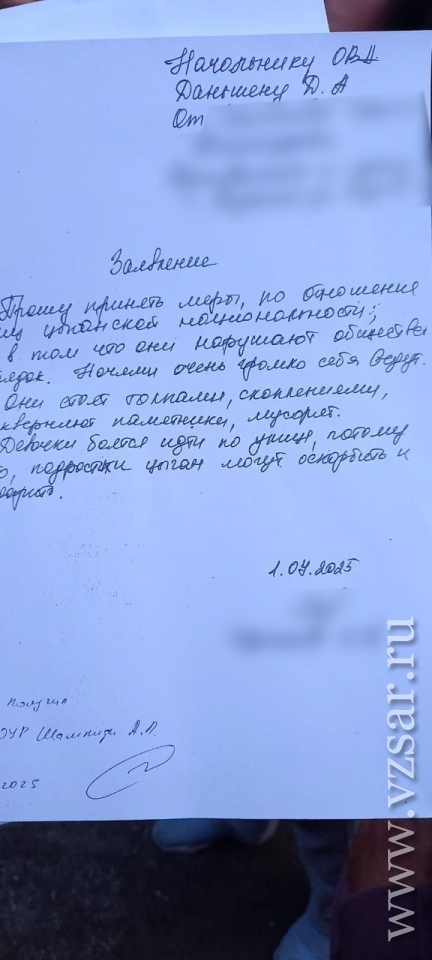 Начальнику ОВД
Даньшену Д. А
От
Заявление
Прошу принять меры, по отношение
лиц цыганской национальности;,
в том что они нарушают обществен
рядок. Ночами очень громко себя ведут.
Они стоят толпами, скоплениями,
скверняют памятники, мусорят.
Девочки боятся идти по улици, потому
о, подростки цыган могут оскорбить и
1.07.2025
Получил
ОУР А.П.
2025
www.vzsar.ru